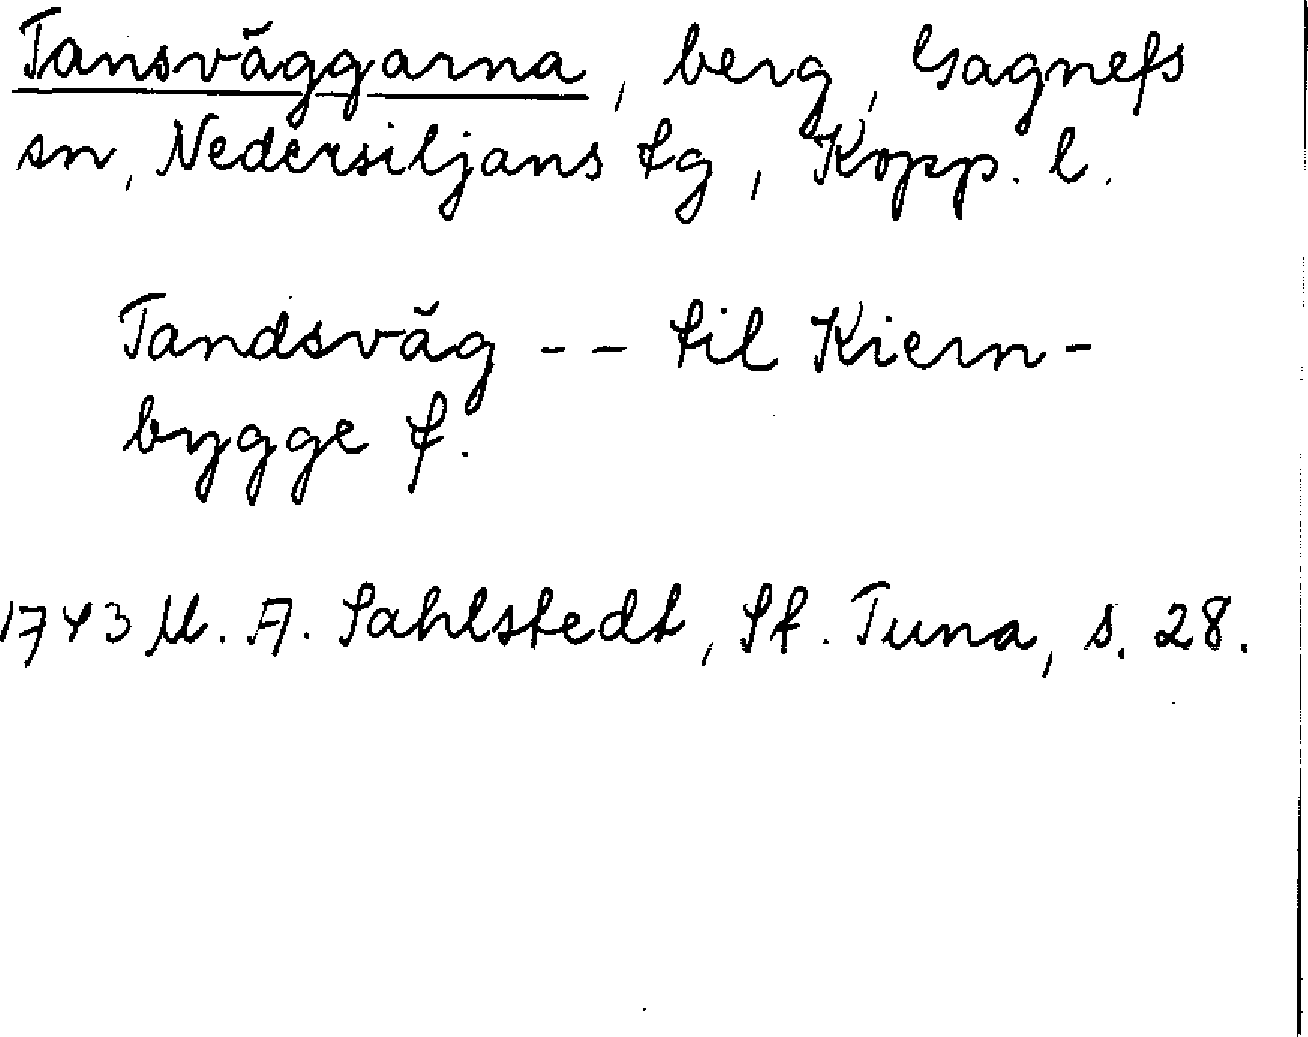 Tansväggarna, berg, Gagnefs
sn, Nedersiljans tg, Kopp. l.
Tandsväg -- til Kiern-
bygge f.
1743 U. A. Sahlstedt, St. Tuna, s. 28.